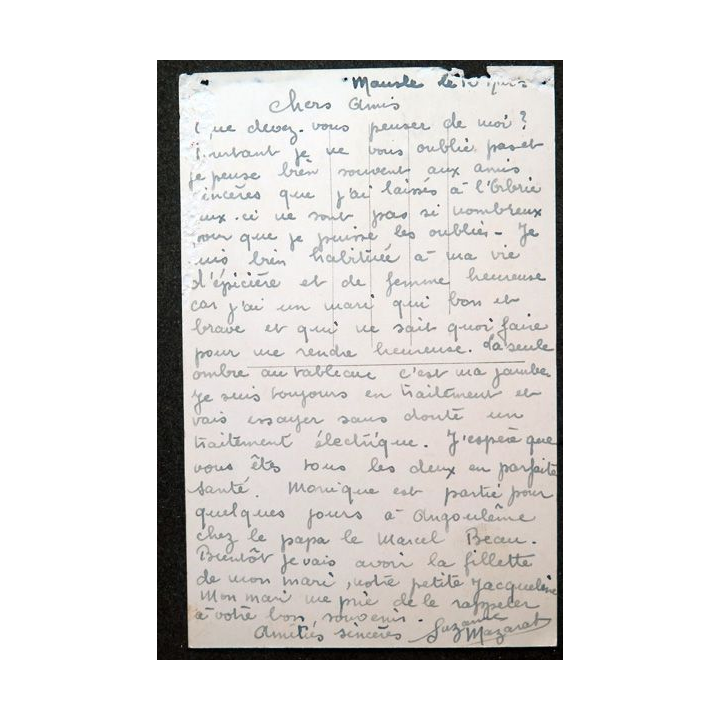 Mansle le
Chers Amis
que devez-vous penser de moi ?
je ne vous oublie pas et
je pense bien souvent aux amis
incères que j'ai laissés à
eux-ci ne sont pas si nombreux
our que je puisse les oublier - Je
uis bien habituée à ma vie
d'épicière et de femme heureuse
car j'ai un mari qui bon et
brave et qui ne sait quoi faire
pour me rendre heureuse. La seule
ombre au tableau c'est ma jambe.
Je suis toujours en traitement et
vais essayer sans doute un
traitement électrique. J'espère que
vous êtes tous les deux en parfaite
santé. Monique est partie pour
quelques jours à Angoulême
chez le papa le Marcel Beau.
Bientôt je vais avoir la fillette
de mon mari, notre petite Jacqueline
Mon mari me prie de le rappeler
à votre bon souvenir.
Amitiés sincères Suzanne
Mazarat